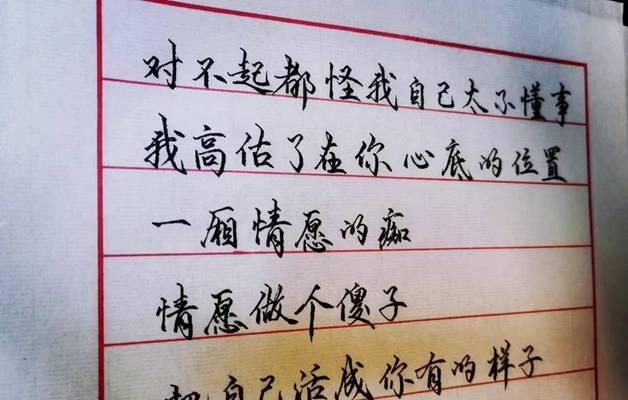 对不起都怪我自己太不懂事
我高估了在你心底的位置
一厢情愿的痴
情愿做个傻子
把自己活成你有的样子